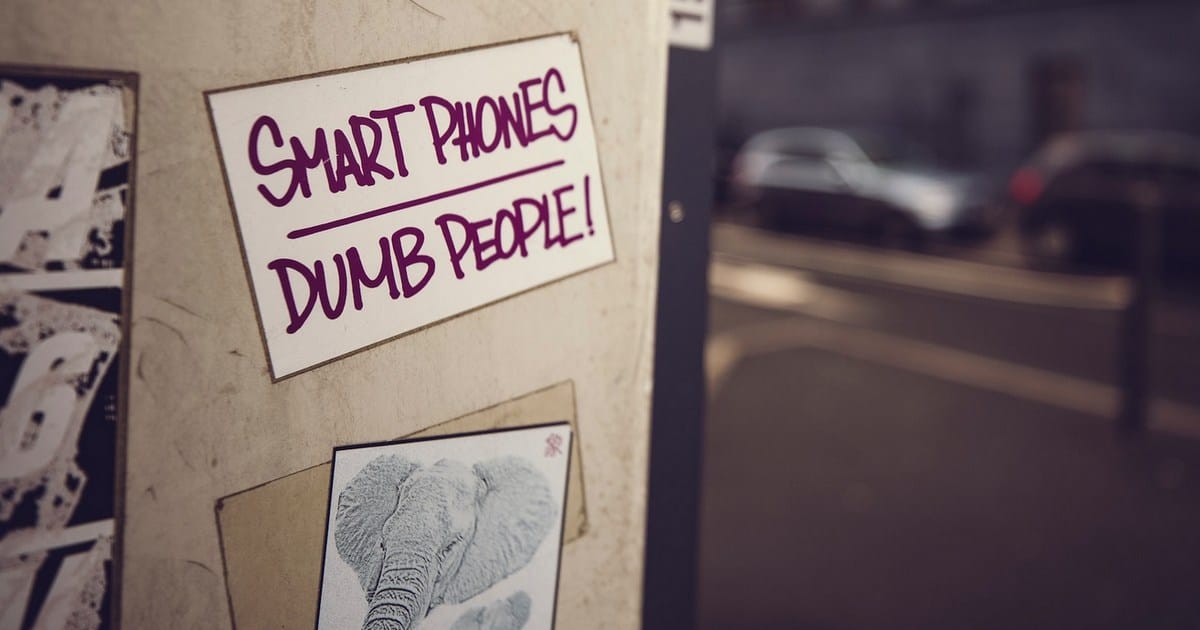 SMART PHONES
DUMB PEOPLE!